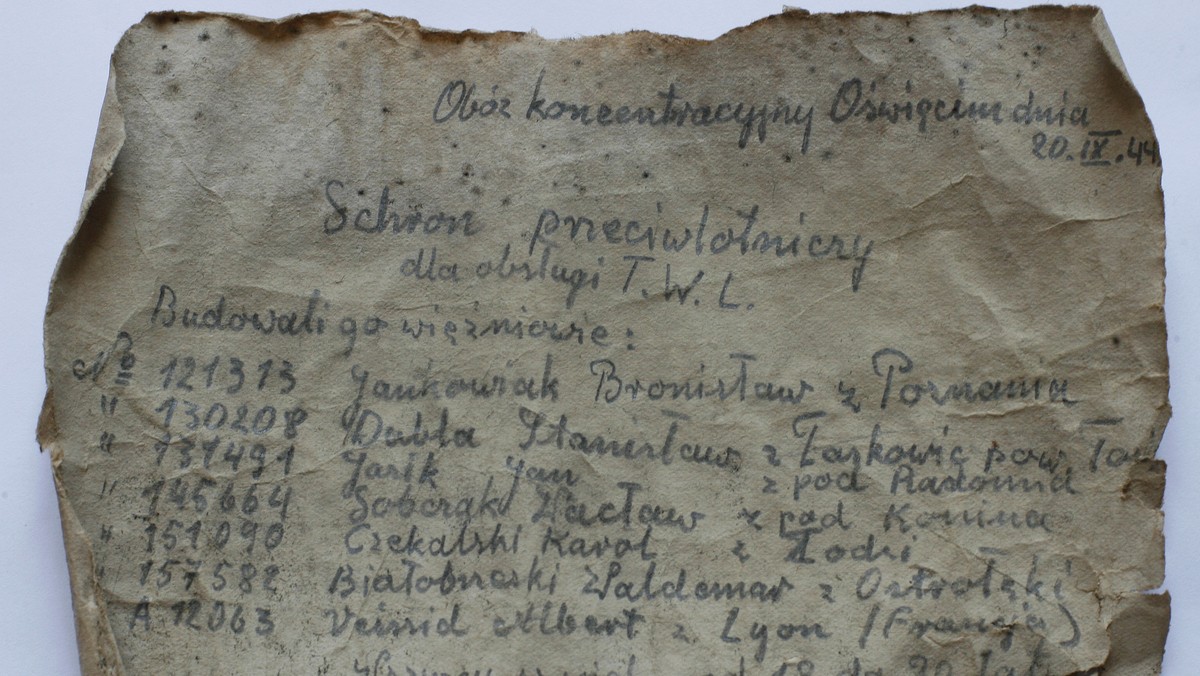 Obóz koncentracyjny Oświęcim dnia
20.IX.44
Schron przeciwlotniczy
dla obsługi T.W.L.
Budowali go więźniowie:
№ 121313 Jankowiak Bronisław z Poznania
" 130208 Dubla Stanisław z Łaskowic pow. Ło
" 131491 Jasik Jan z pod Radomia
" 145664 Sobczak Wacław z pod Konina
" 151090 Czekalski Karol z Łodzi
" 157582 Białobrzeski Waldemar z Ostrołęki
A 12063 Veissid Albert z Lyon (Francja)
Wszyscy od 18 do 20 lat